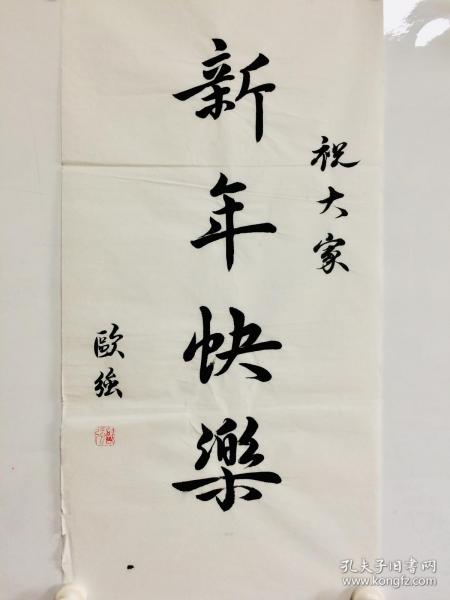 祝大家
新年快樂
歐強
孔夫子旧书网
www.kongfz.com